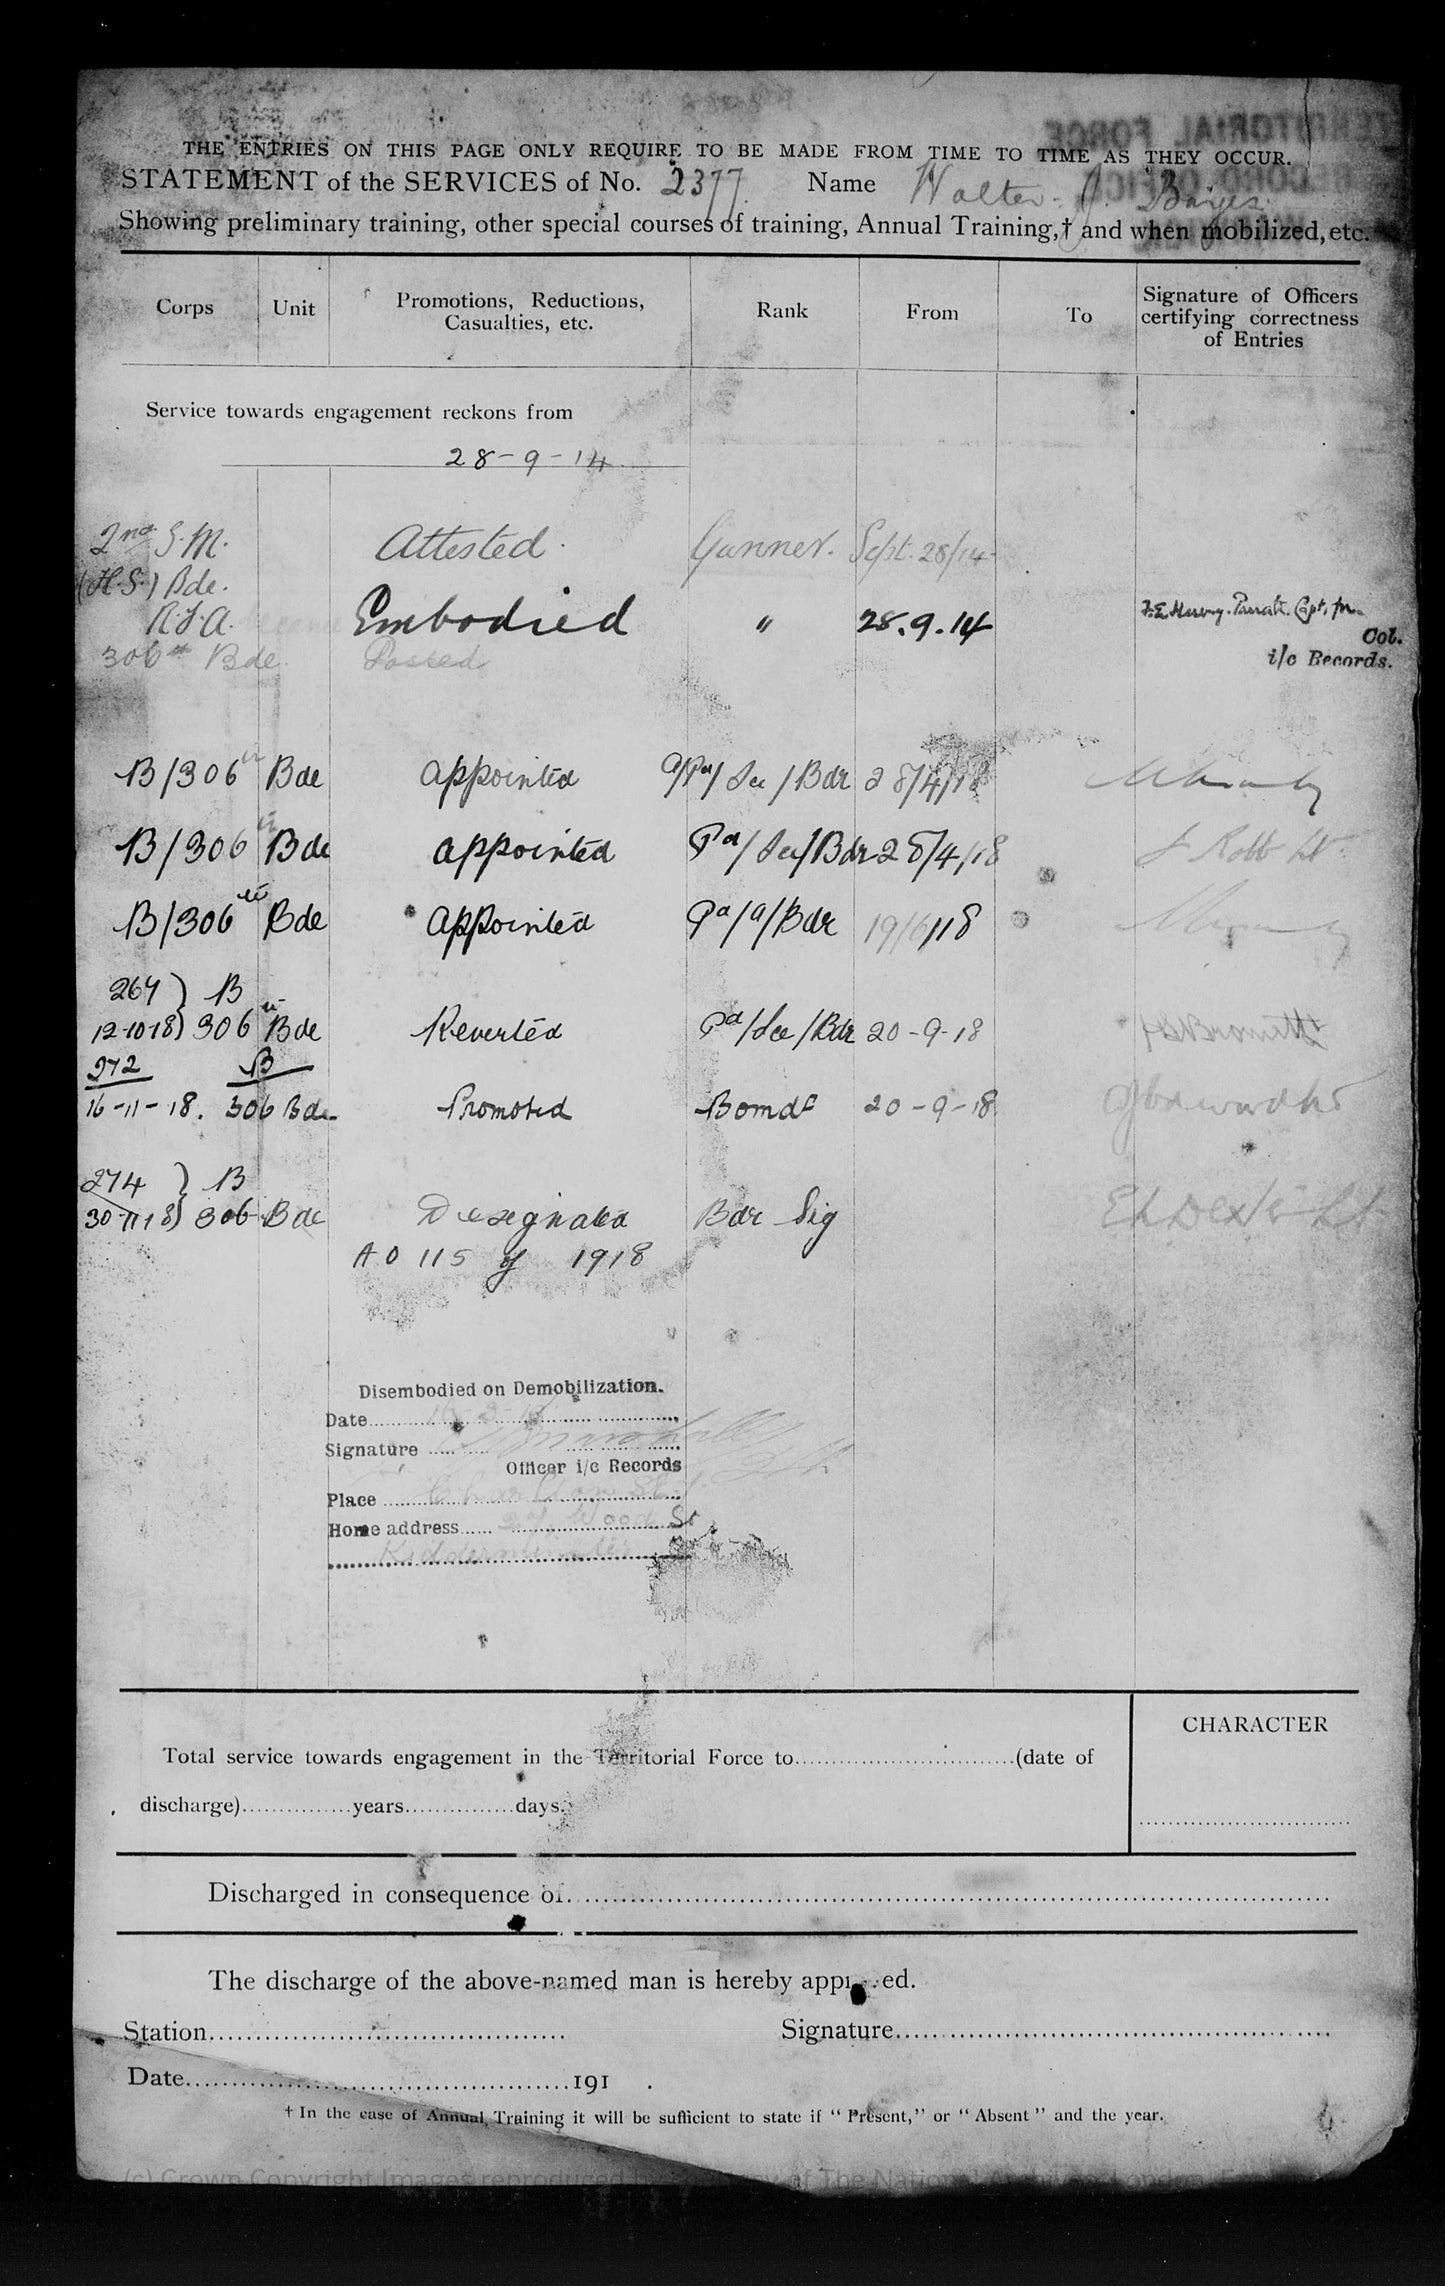 TERRITORIAL FORCE
RECORD OFFICE
THE ENTRIES ON THIS PAGE ONLY REQUIRE TO BE MADE FROM TIME TO TIME AS THEY OCCUR.
STATEMENT of the SERVICES of No. 2377 Name Walter J.
Showing preliminary training, other special courses of training, Annual Training,† and when mobilized, etc.
Corps Unit Promotions, Reductions, Casualties, etc. Rank From To Signature of Officers certifying correctness of Entries
Service towards engagement reckons from
28-9-14
2nd S.M. Attested. Gunner. Sept. 28/14
(H.S.) Bde.
R.F.A. Embodied " 28.9.14 Capt. for
Col.
306th Bde. Posted i/c Records.
B/306 Bde appointed Bdr 28/4/18
B/306 Bde appointed Pd/ Bdr 28/4/18
B/306 Bde appointed Pd/a/Bdr 19/6/18
264 ) B
12-10-18) 306 Bde Reverted Pd/ Bdr 20-9-18
272 B
16-11-18. 306 Bde Promoted Bomdr 20-9-18
274 ) B
30-11-18) 306 Bde Designated Bdr Sig
AO 115 of 1918
Disembodied on Demobilization.
Date
Signature
Officer i/c Records
Place
Home address Wood St
Kidderminster
Total service towards engagement in the Territorial Force to (date of
discharge) years days.
CHARACTER
Discharged in consequence of
The discharge of the above-named man is hereby approved.
Station Signature
Date 191 .
† In the case of Annual Training it will be sufficient to state if "Present," or "Absent" and the year.
(c) Crown Copyright Images reproduced by of The National Archives, London,